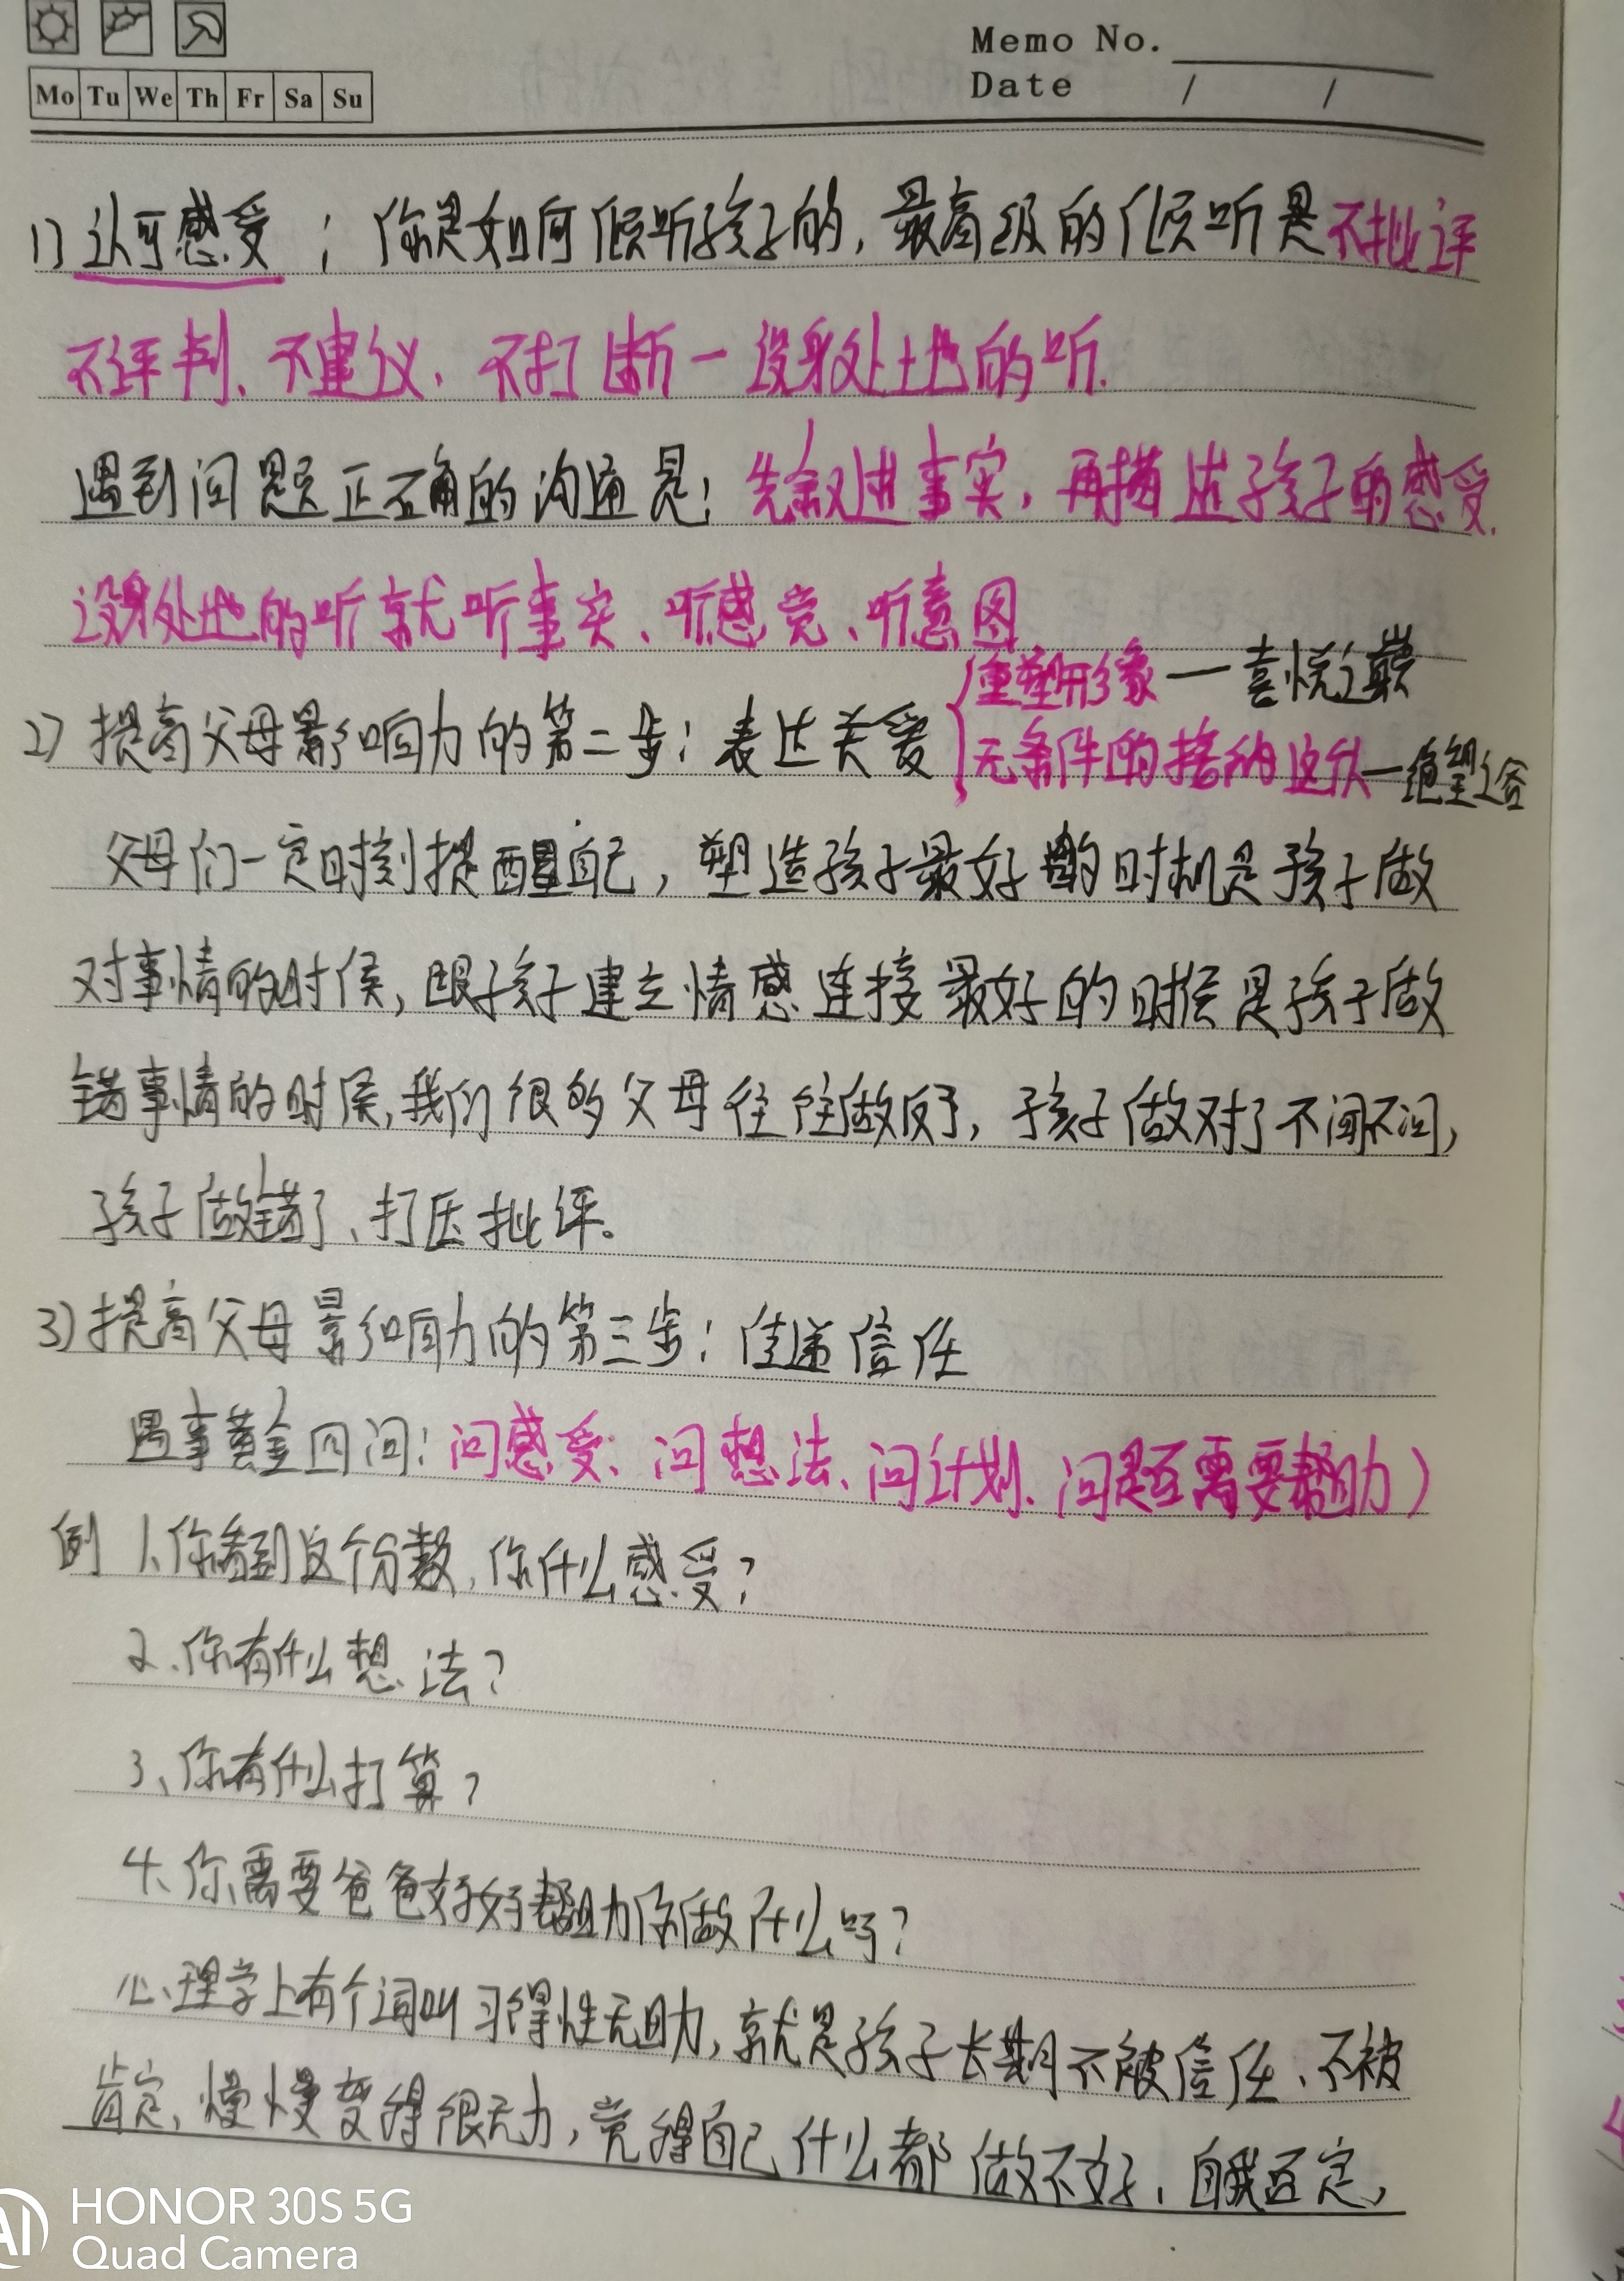 Memo No.
Mo Tu We Th Fr Sa Su
Date / /
1) 认可感受：你是如何倾听孩子的，最高级的倾听是不批评
不评判、不建议、不打断一设身处地的听.
遇到问题正确的沟通是：先叙述事实，再描述孩子的感受.
设身处地的听就听事实、听感觉、听意图
重塑形象一喜悦之最
2) 提高父母影响力的第二步：表达关爱
无条件的接纳 一绝望之谷
父母们一定时刻提醒自己，塑造孩子最好的时机是孩子做
对事情的时候，跟孩子建立情感连接最好的时候是孩子做
错事情的时候，我们很多父母往往做反了，孩子做对了不闻不问，
孩子做错了、打压批评。
3) 提高父母影响力的第三步：传递信任
遇事黄金四问：问感受、问想法、问计划、问是否需要帮助）
例 1、你看到这个分数，你什么感受？
2、你有什么想法？
3、你有什么打算？
4、你需要爸爸妈妈帮助你做什么吗？
心理学上有个词叫习得性无助，就是孩子长期不被信任、不被
肯定，慢慢变得很无力，觉得自己什么都做不好，自我否定，
AI HONOR 30S 5G
Quad Camera